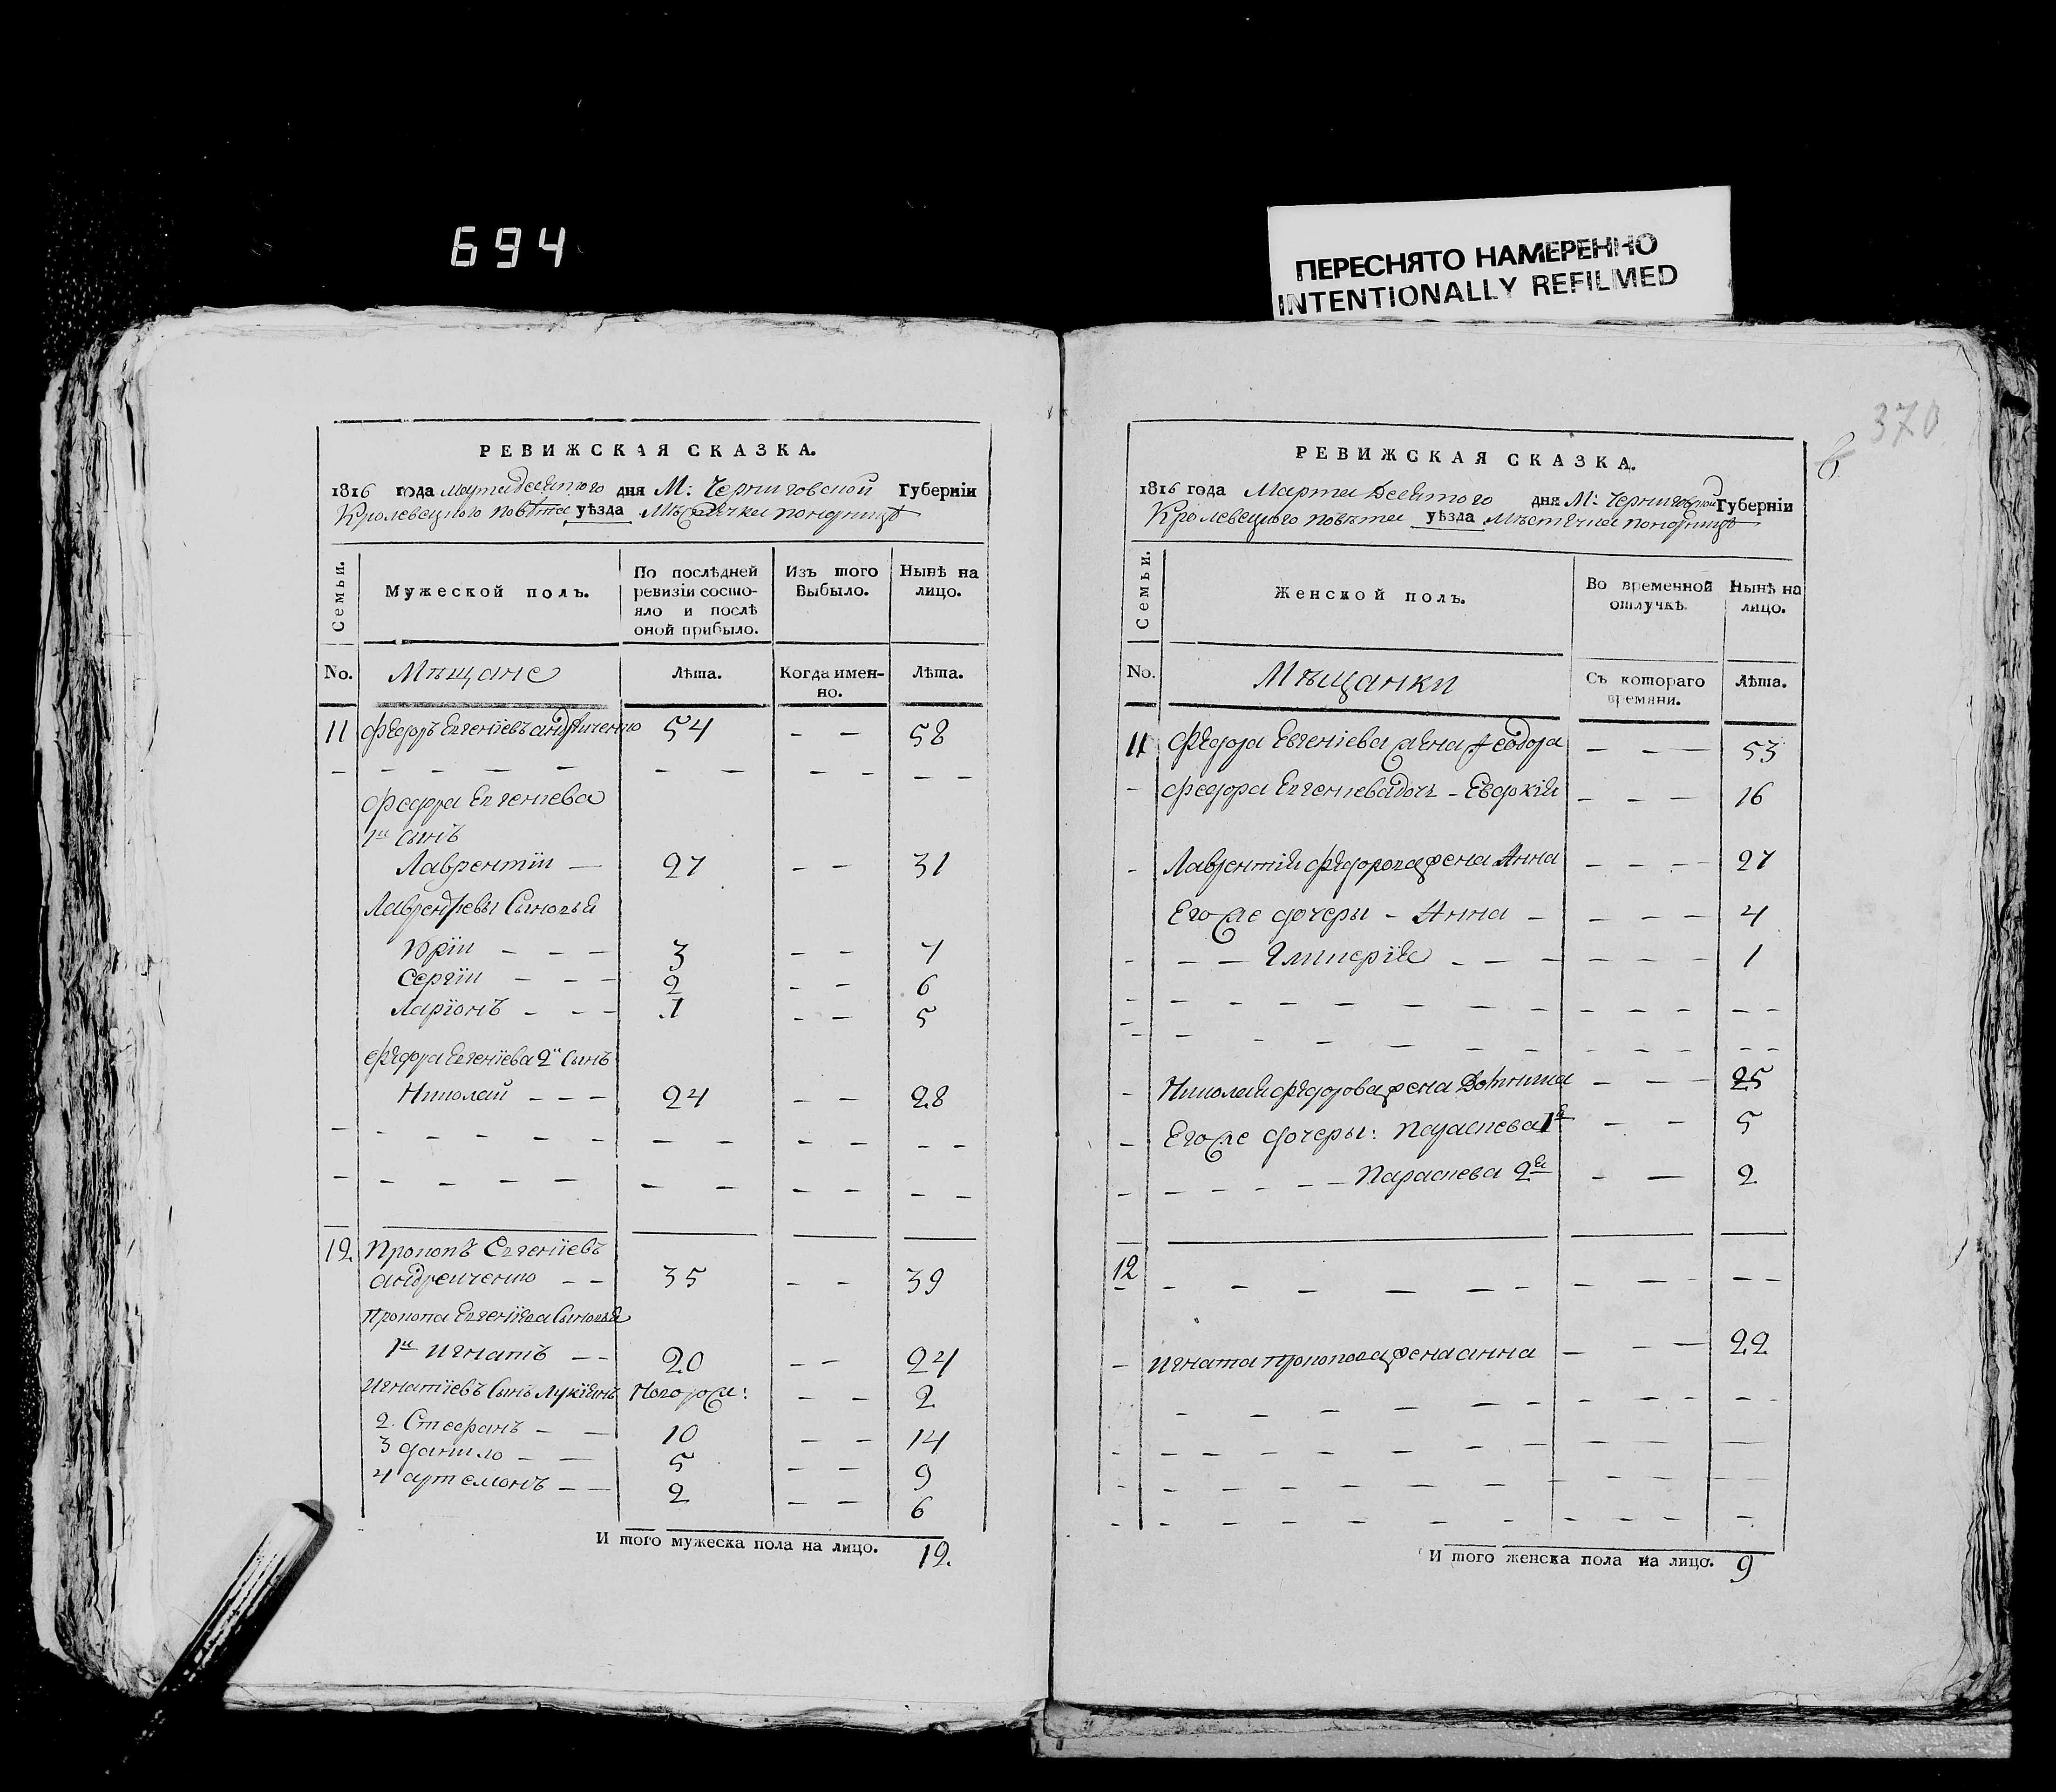 694
ПЕРЕСНЯТО НАМЕРЕННО
INTENTIONALLY REFILMED
370
РЕВИЖСКАЯ СКАЗКА.
1816 года Марта десятого дня М: Черниговской Губерніи
Кролевецкого повѣта уѣзда Мѣстечка понорницѣ
Семьи.
Мужеской полъ.
По послѣдней
ревизіи состо-
яло и послѣ
оной прибыло.
Изъ того
Выбыло.
Нынѣ на
лицо.
No. Мѣщане Лѣта. Когда имен-
но. Лѣта.
11 Федоръ Евгеніевъ андрейченко 54 — — 58
Федора Евгеніева
1й сынъ
Лаврентіи — 27 — — 31
Лаврентіевы Сыновья
Юріи — — — 3 — — 7
Сергіи — — — 2 — — 6
Ларіонъ — — — 1 — — 5
Федора Евгеніева 2й Сынъ
Николай — — — 24 — — 28
12. Прокопъ Евгеніевъ
андрейченко — — 35 — — 39
Прокопа Евгеніева Сыновья
1й Игнатъ — — 20 — — 24
Игнатіевъ Сынъ Лукіянъ Новорож: — — 2
2. Стефанъ — — 10 — — 14
3 данило — — 5 — — 9
4 артемонъ — — 2 — — 6
И того мужеска пола на лицо. 12.
РЕВИЖСКАЯ СКАЗКА.
1816 года Марта Десятого дня М: Черниговской Губерніи
Кролевецкого повѣта уѣзда Мѣстечка понорницѣ
Семьи.
Женской полъ.
Во временной
отлучкѣ.
Нынѣ на
лицо.
No. Мѣщанки Съ котораго
времяни. Лѣта.
11 Федора Евгеніева жена Феодора — — — 53
Федора Евгеніева дочь — Евдокія — — — 16
Лаврентія Федорова жена Анна — — — 27
Его же дочеры — Анна — — — — 4
— — Гликерія — — — — — — 1
Николая Федорова жена — — — 25
Его же дочеры: Параскева 1я — — 5
Параскева 2я — — 2
12
Игната Прокопова жена анна — — — 22
И того женска пола на лицо. 9